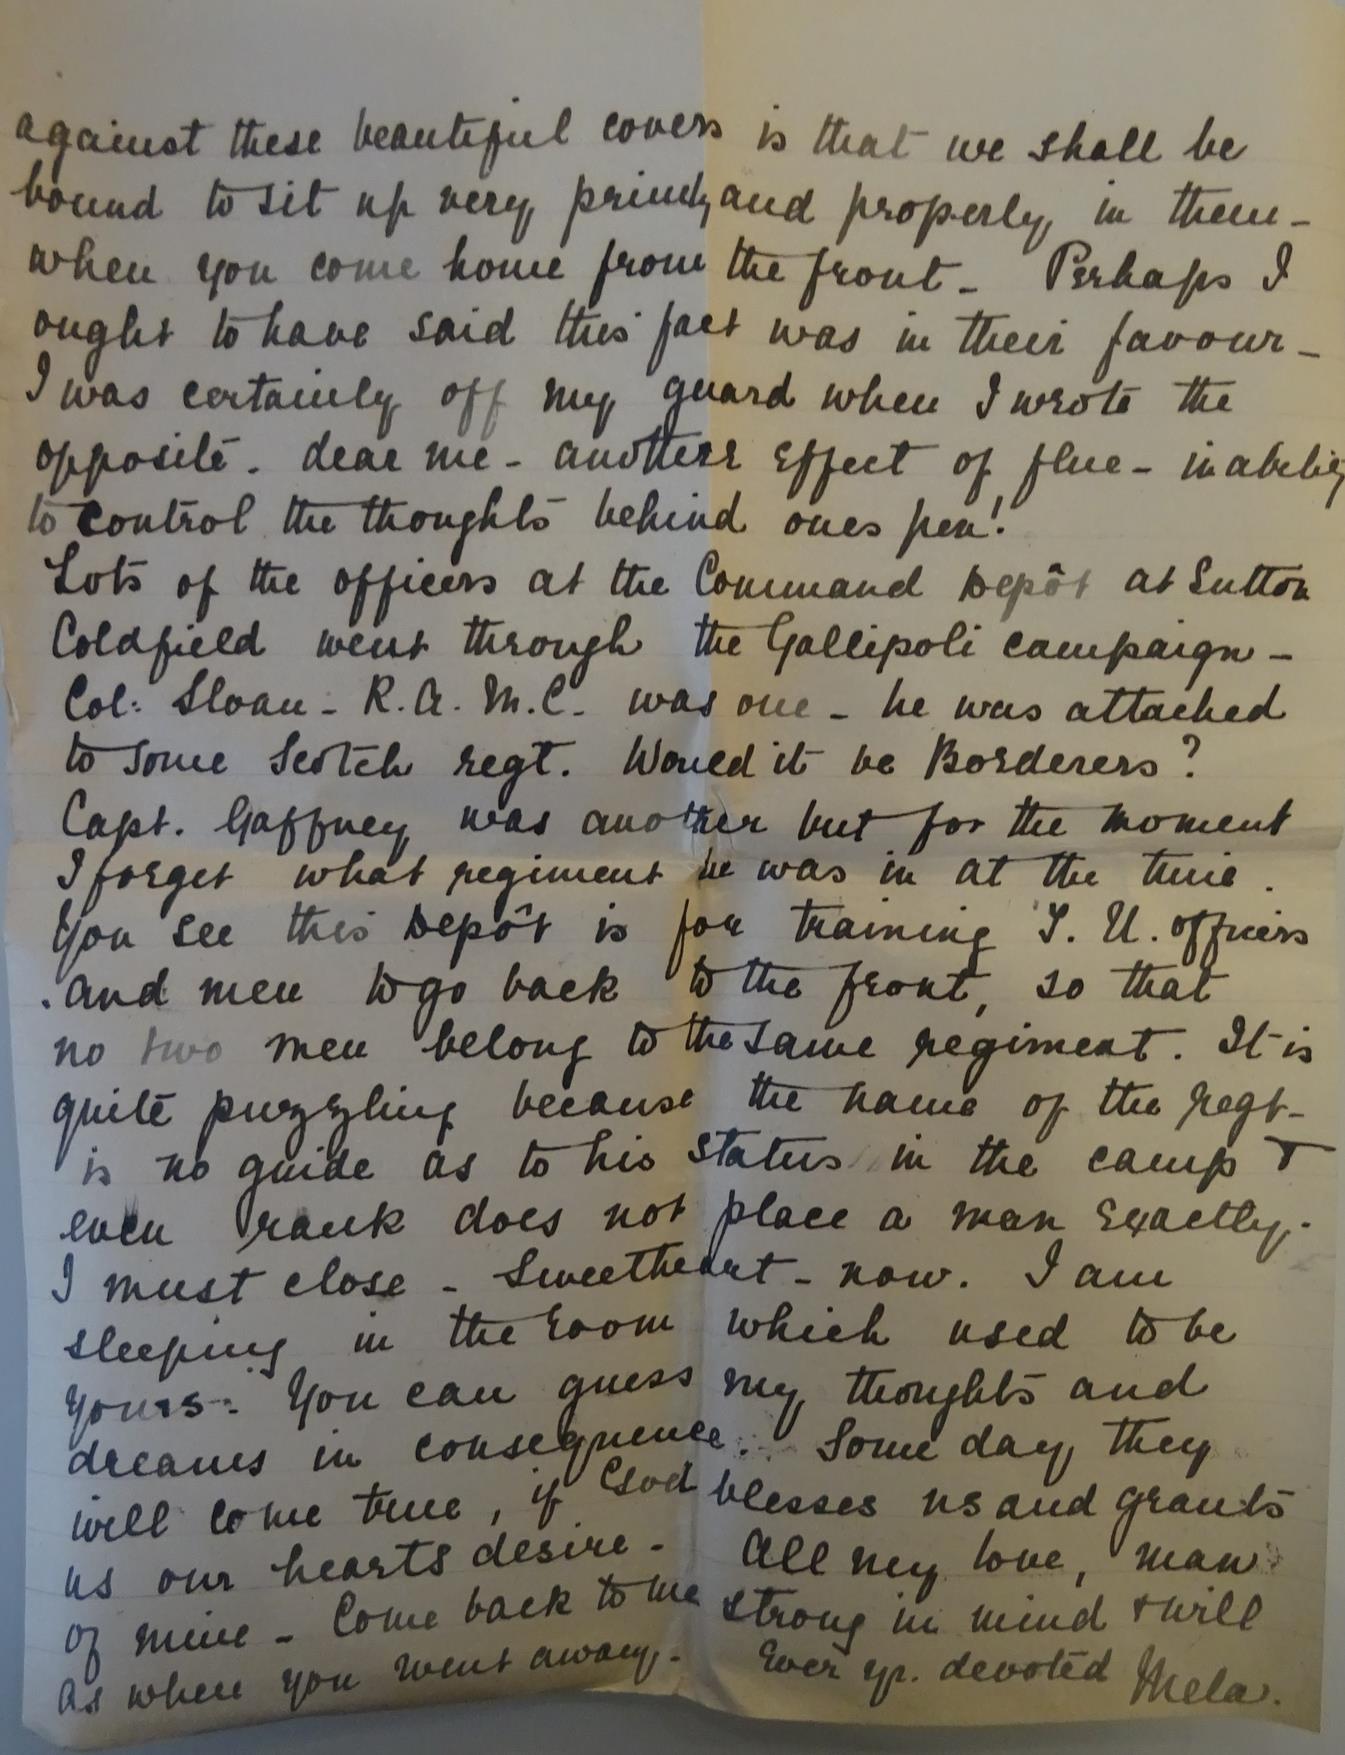 against these beautiful covers is that we shall be
bound to sit up very primly and properly in them -
when you come home from the front - Perhaps I
ought to have said this fact was in their favour -
I was certainly off my guard when I wrote the
opposite. dear me - another effect of flue - inability
to control the thoughts behind ones pen!
Lots of the officers at the Command Depôt at Sutton
Coldfield went through the Gallipoli campaign -
Col: Sloan - R.A.M.C. was one - he was attached
to some Scotch regt. Would it be Borderers?
Capt. Gaffney was another but for the moment
I forget what regiment he was in at the time.
You see this Depôt is for training T. U. officers
and men to go back to the front, so that
no two men belong to the same regiment. It is
quite puzzling because the name of the regt -
is no guide as to his status in the camp &
even rank does not place a man exactly.
I must close - Sweetheart - now. I am
sleeping in the room which used to be
yours. You can guess my thoughts and
dreams in consequence. Some day they
will come true, if God blesses us and grants
us our hearts desire - All my love, man
of mine - Come back to me strong in mind & will
as when you went away. - Ever yr. devoted Mela.